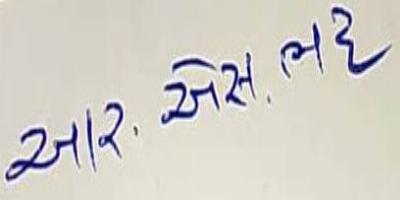 આર. એસ. ભટ્ટ